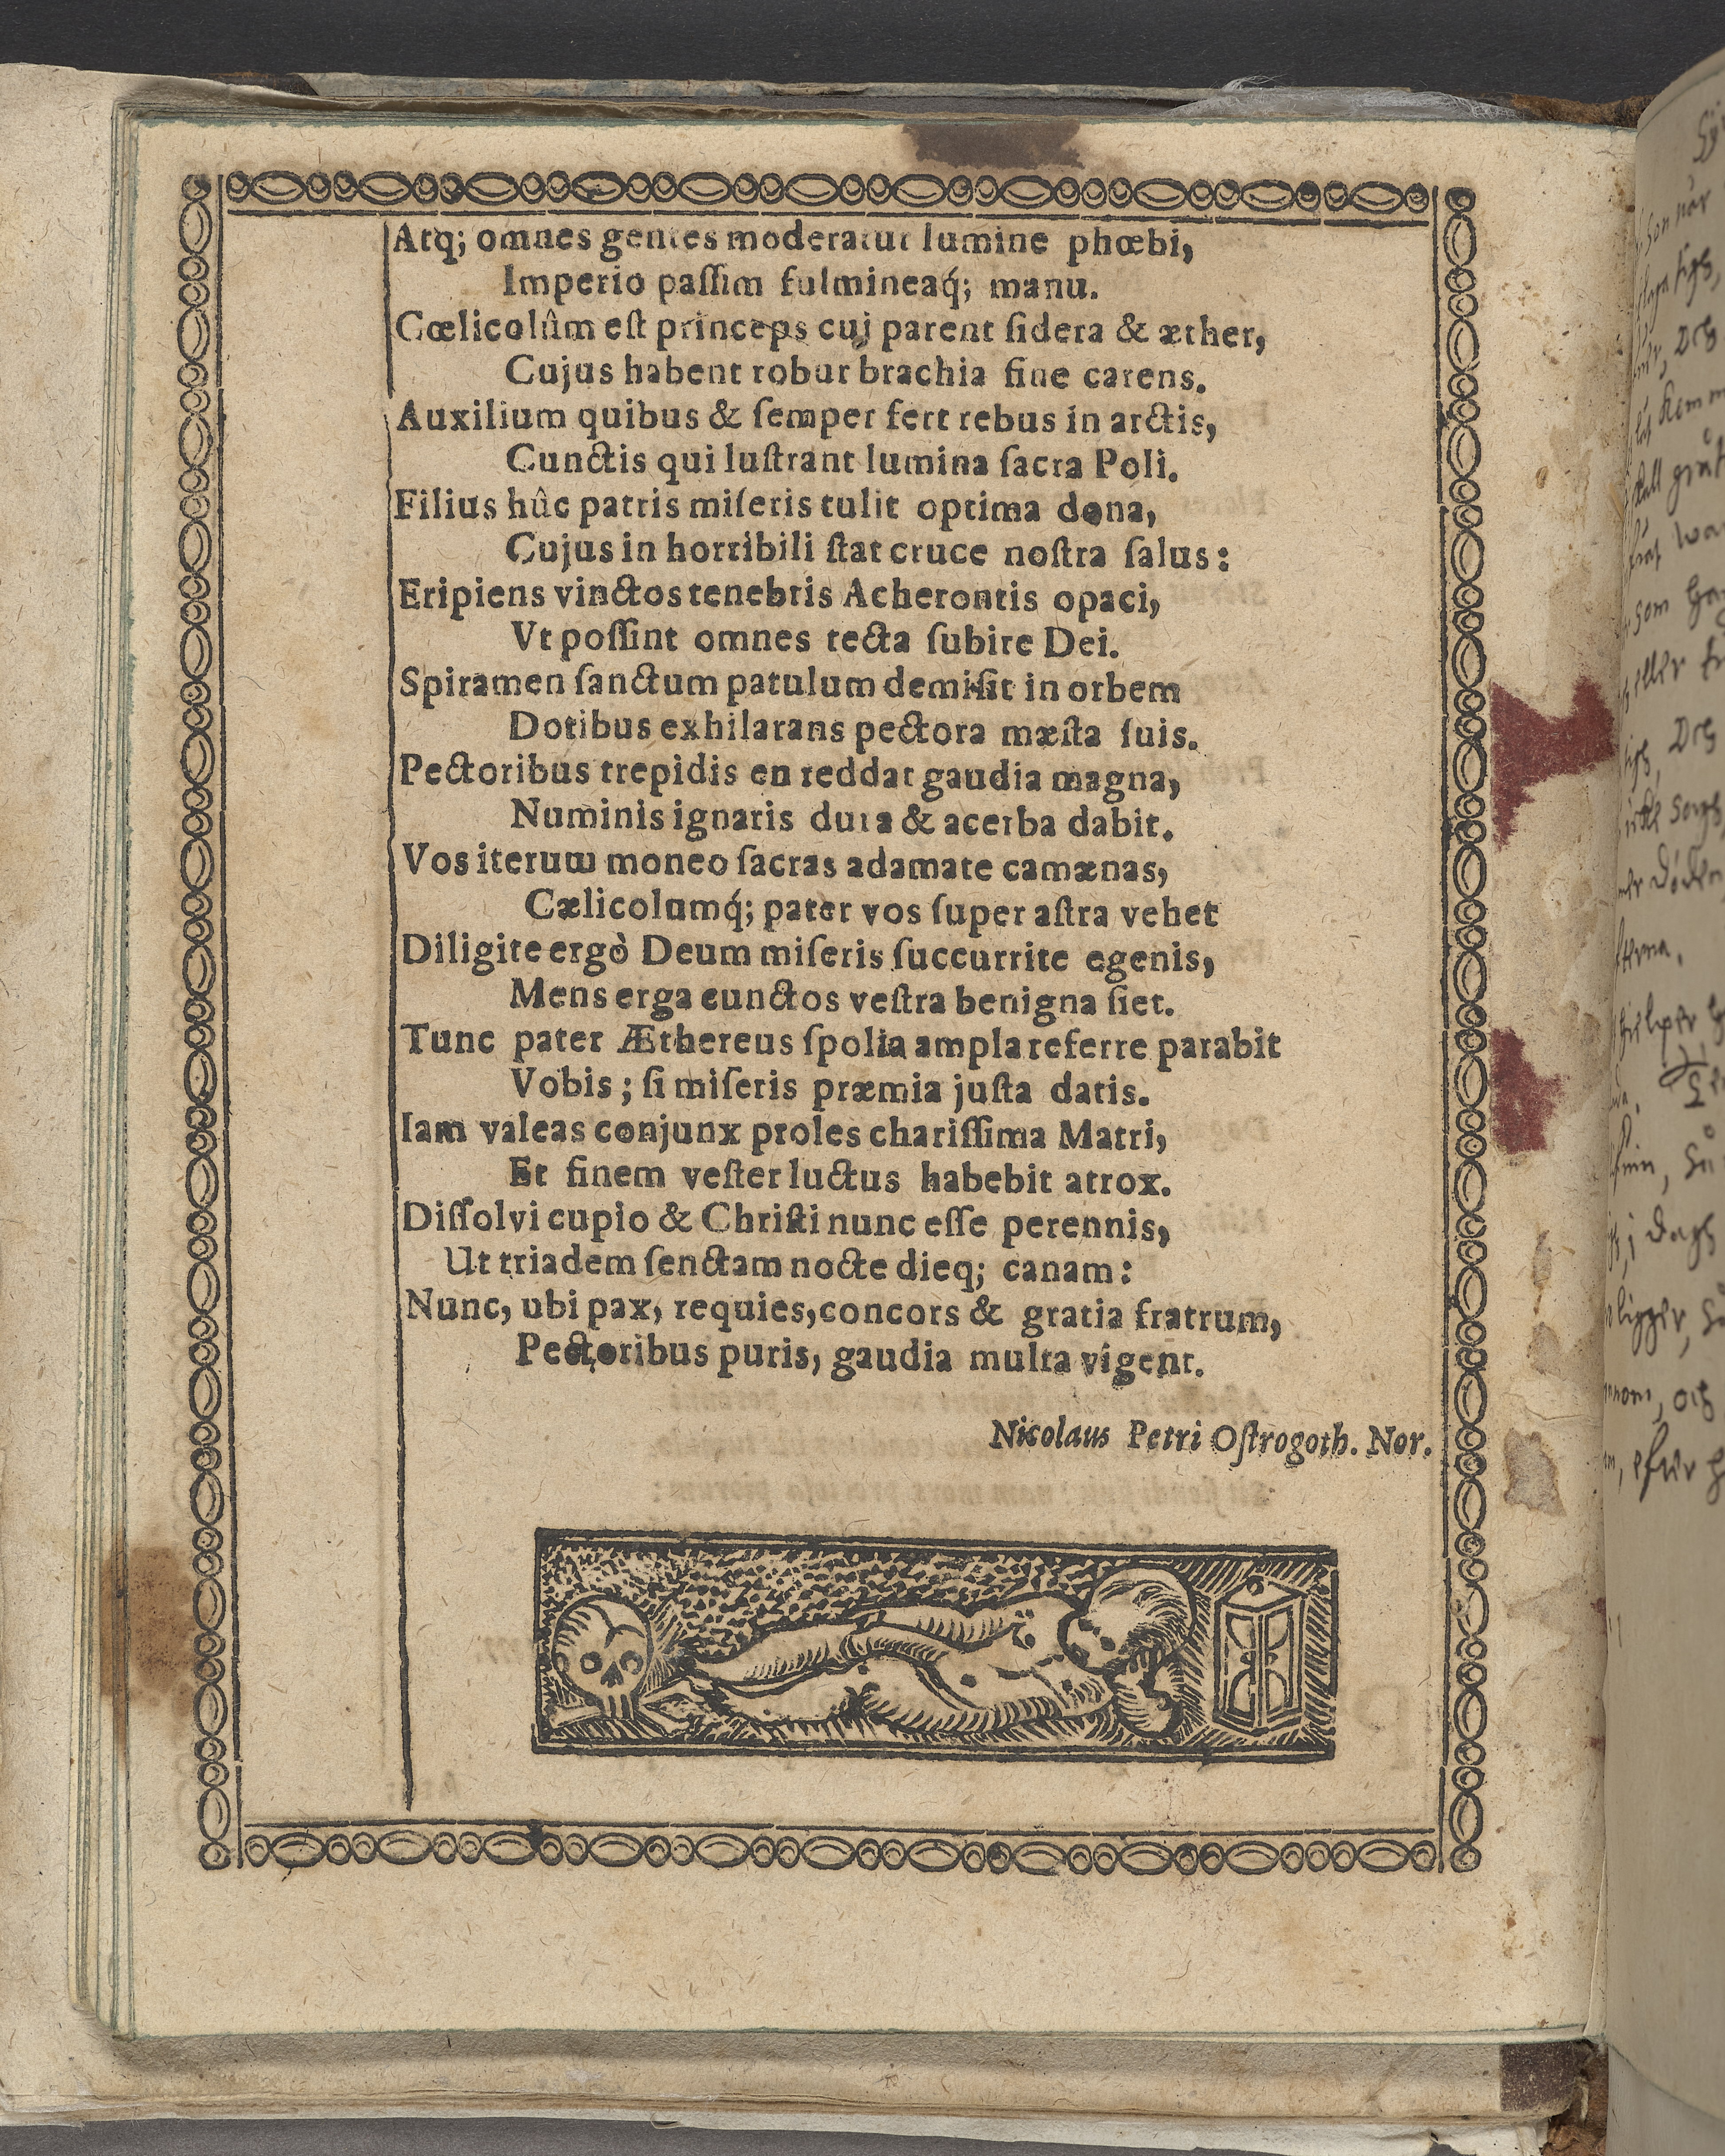 Atq; omnes gentes moderatur lumine phœbi,
Imperio paſſim fulmineaq́; manu.
Cœlicolûm eſt princeps cuj parent ſidera & æther,
Cujus habent robur brachia fine carens.
Auxilium quibus & ſemper fert rebus in arctis,
Cunctis qui luſtrant lumina ſacra Poli.
Filius hûc patris miſeris tulit optima dona,
Cujus in horribili ſtat cruce noſtra ſalus:
Eripiens vinctos tenebris Acherontis opaci,
Vt poſſint omnes tecta ſubire Dei.
Spiramen ſanctum patulum demiſit in orbem
Dotibus exhilarans pectora mæſta ſuis.
Pectoribus trepidis en reddat gaudia magna,
Numinis ignaris dura & acerba dabit.
Vos iterum moneo ſacras adamate camænas,
Cælicolumq́; pater vos ſuper aſtra vehet
Diligite ergò Deum miſeris ſuccurrite egenis,
Mens erga cunctos veſtra benigna ſiet.
Tunc pater Æthereus ſpolia ampla referre parabit
Vobis; ſi miſeris præmia juſta datis.
Iam valeas conjunx proles chariſſima Matri,
Et finem veſter luctus habebit atrox.
Diſſolvi cupio & Chriſti nunc eſſe perennis,
Ut triadem ſenctam nocte dieq; canam:
Nunc, ubi pax, requies, concors & gratia fratrum,
Pectoribus puris, gaudia multa vigent.
Nicolaus Petri Oſtrogoth. Nor.